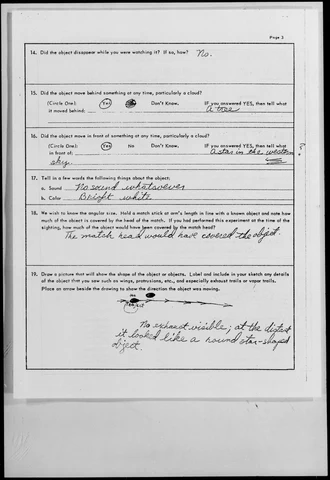 Page 3
14. Did the object disappear while you were watching it? If so, how? No.
15. Did the object move behind something at any time, particularly a cloud?
(Circle One): Yes Don't Know. IF you answered YES, then tell what
it moved behind: A tree
16. Did the object move in front of something at any time, particularly a cloud?
(Circle One): Yes No Don't Know. IF you answered YES, then tell what
in front of: A star in the western
sky.
17. Tell in a few words the following things about the object:
a. Sound No sound whatsoever
b. Color Bright white
18. We wish to know the angular size. Hold a match stick at arm's length in line with a known object and note how
much of the object is covered by the head of the match. If you had performed this experiment at the time of the
sighting, how much of the object would have been covered by the match head?
The match head would have covered the object.
19. Draw a picture that will show the shape of the object or objects. Label and include in your sketch any details
of the object that you saw such as wings, protrusions, etc., and especially exhaust trails or vapor trails.
Place an arrow beside the drawing to show the direction the object was moving.
No exhaust visible; at the
it looked like a round star-shaped
object.